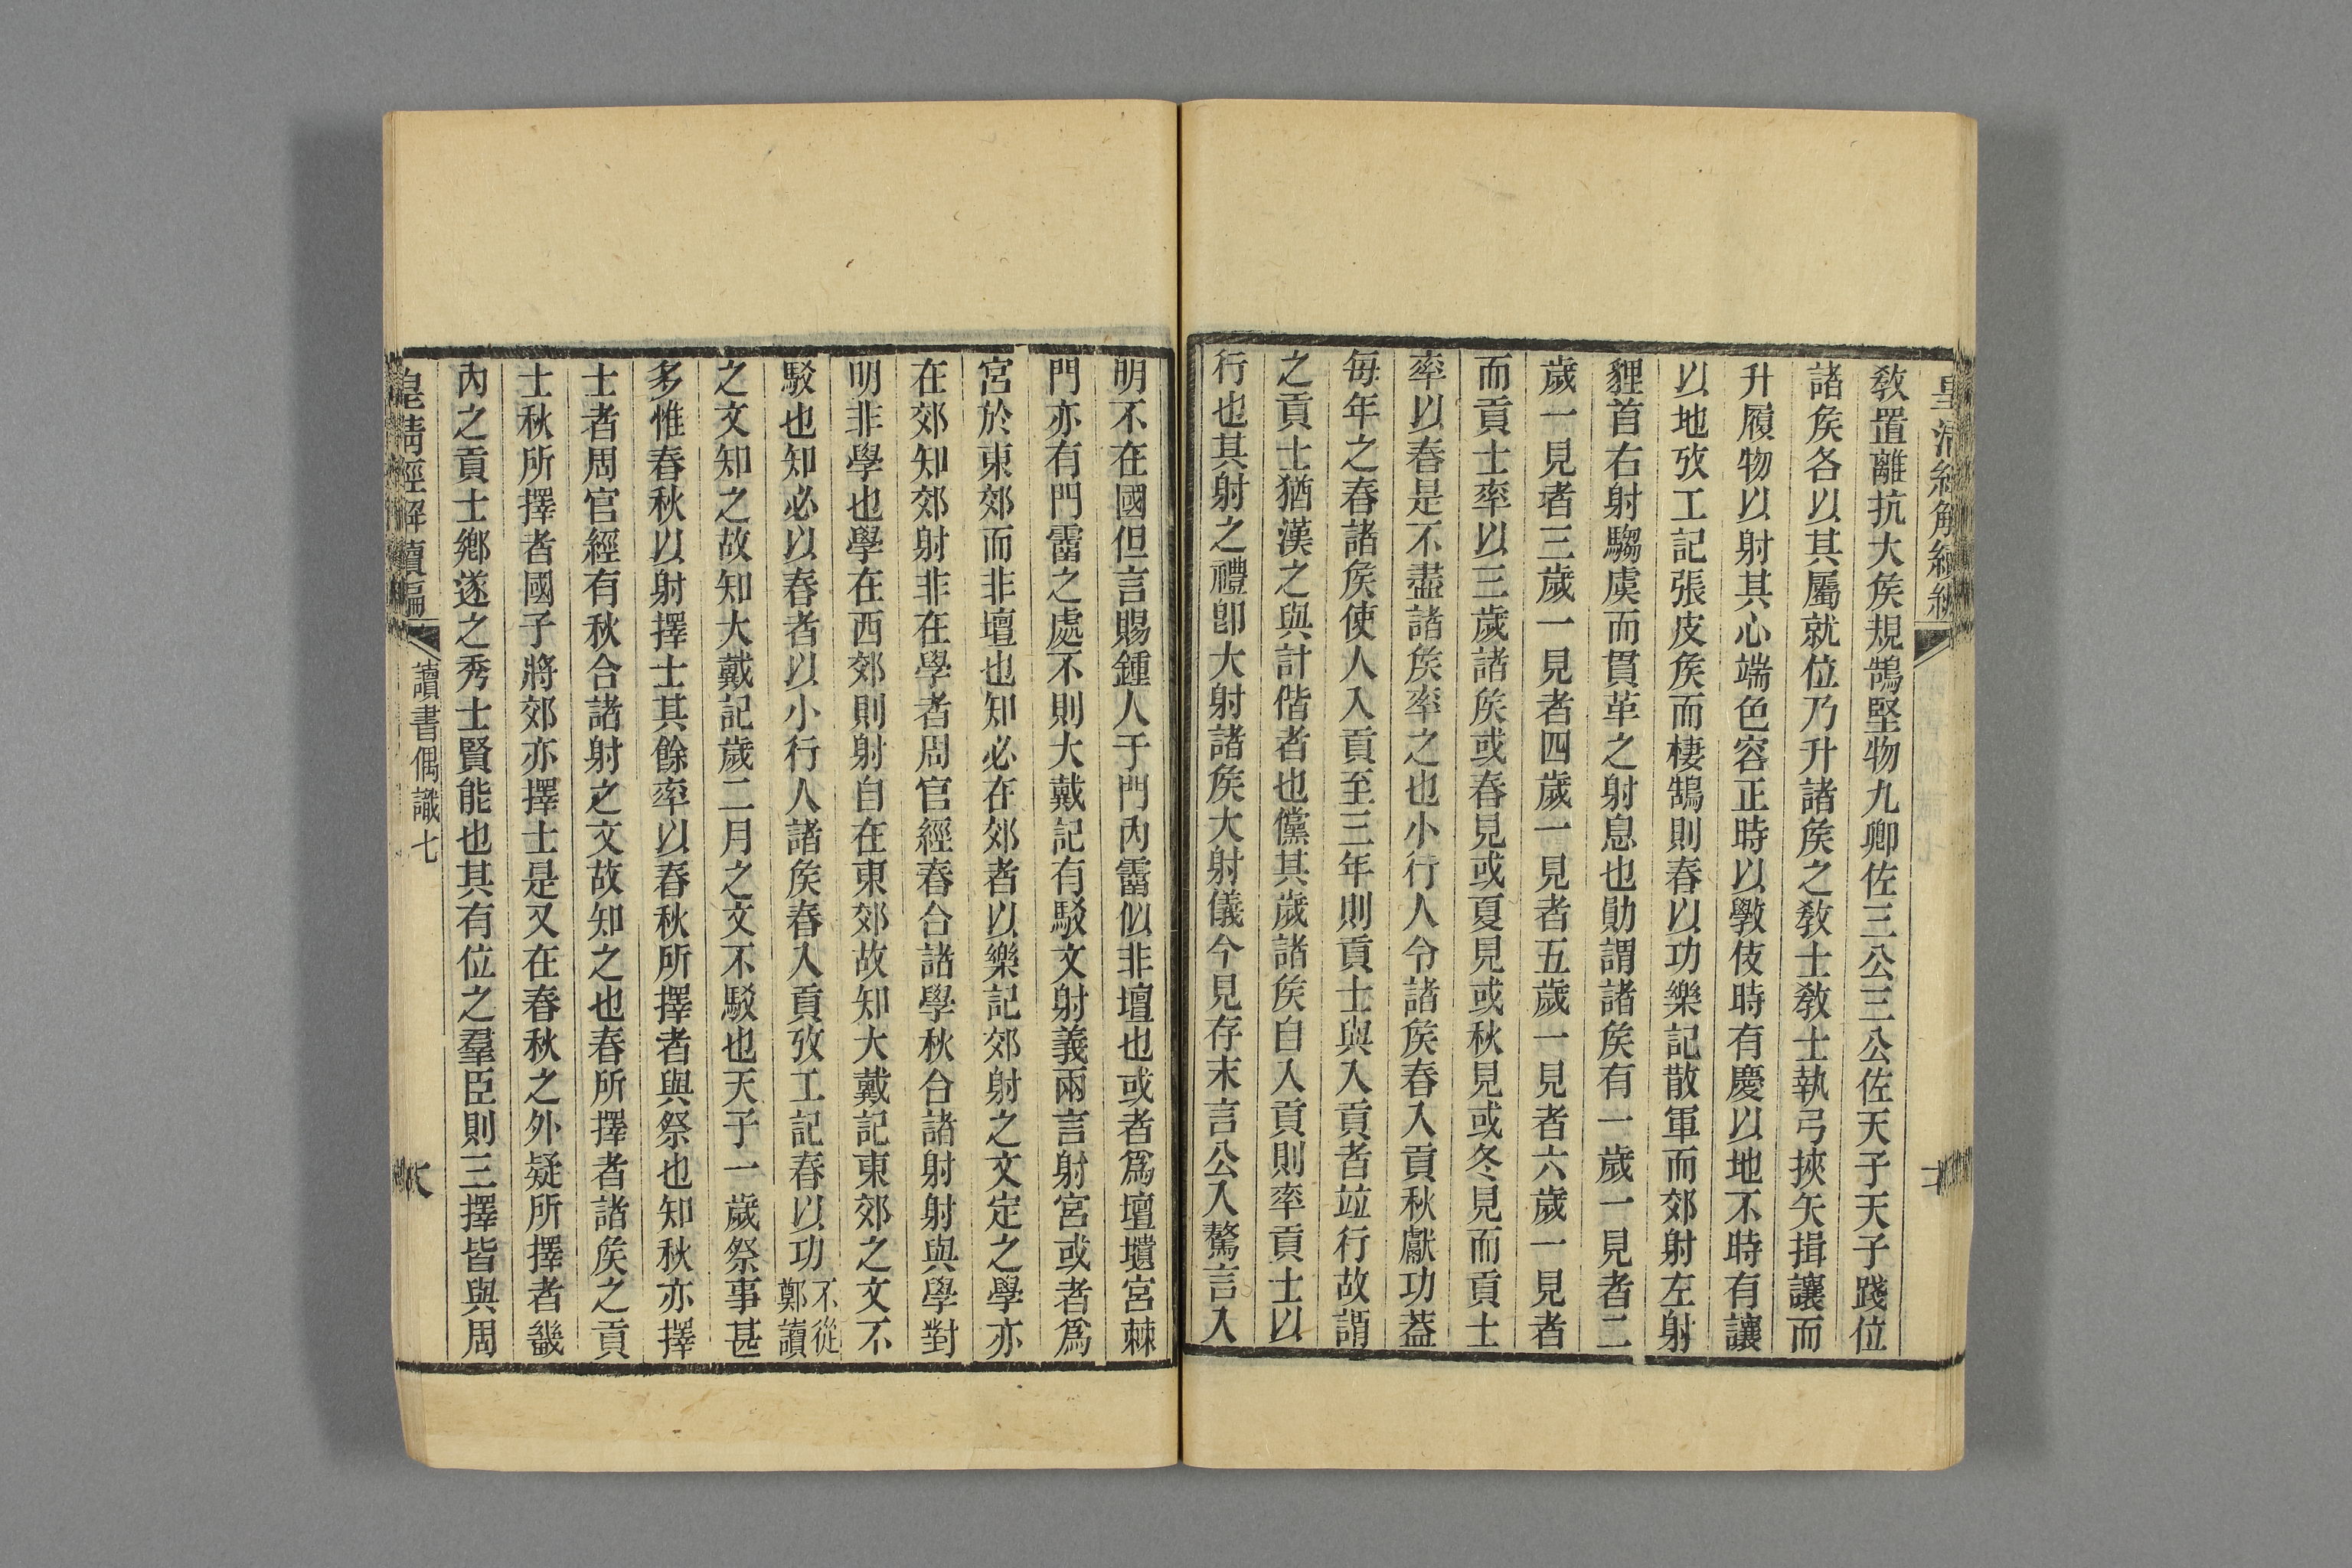 皇清經解續編
教置離抗大矦規鵠堅物九卿佐三公三公佐天子天子踐位
諸矦各以其屬就位乃升諸矦之敎士敎士執弓挾矢揖讓而
升履物以射其心端色容正時以斆伎時有慶以地不時有讓
以地攷工記張皮矦而棲鵠則春以功樂記散軍而郊射左射
貍首右射騶虞而貫革之射息也勛謂諸矦有一歲一見者二
歲一見者三歲一見者四歲一見者五歲一見者六歲一見者
而貢士率以三歲諸矦或春見或夏見或秋見或冬見而貢士
率以春是不盡諸矦率之也小行人令諸矦春入貢秋獻功葢
每年之春諸矦使人入貢至三年則貢士與入貢者竝行故謂
之貢士猶漢之與計偕者也儻其歲諸矦自入貢則率貢士以
行也其射之禮卽大射諸矦大射儀今見存末言公入驁言入
明不在國但言賜鍾人于門內霤似非壇也或者爲壇壝宮棘
門亦有門霤之處不則大戴記有駁文射義兩言射宮或者爲
宮於東郊而非壇也知必在郊者以樂記郊射之文定之學亦
在郊知郊射非在學者周官經春合諸學秋合諸射射與學對
明非學也學在西郊則射自在東郊故知大戴記東郊之文不
駁也知必以春者以小行人諸矦春入貢攷工記春以功不從鄭讀
之文知之故知大戴記歲二月之文不駁也天子一歲祭事甚
多惟春秋以射擇士其餘率以春秋所擇者與祭也知秋亦擇
士者周官經有秋合諸射之文故知之也春所擇者諸矦之貢
士秋所擇者國子將郊亦擇士是又在春秋之外疑所擇者畿
內之貢士鄉遂之秀士賢能也其有位之羣臣則三擇皆與周
皇清經解續編
讀書偶識七